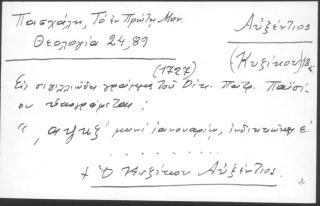 Πασχάλη, Τὸ ἐν Πρώτῳ Μον.
Θεολογία 24, 89
Αὐξέντιος
(Κυζίκου) 18 αἰ.
(1727)
Εἰς σιγιλλιῶδες γράμμα τοῦ Οἰκ. Πατρ. Παϊσί-
ου ὑπογράφεται:
", αψκζ' μηνὶ ἰανουαρίῳ, ἰνδικτιῶνος ε'.
. . . . . . .
+ Ὁ Κυζίκου Αὐξέντιος.